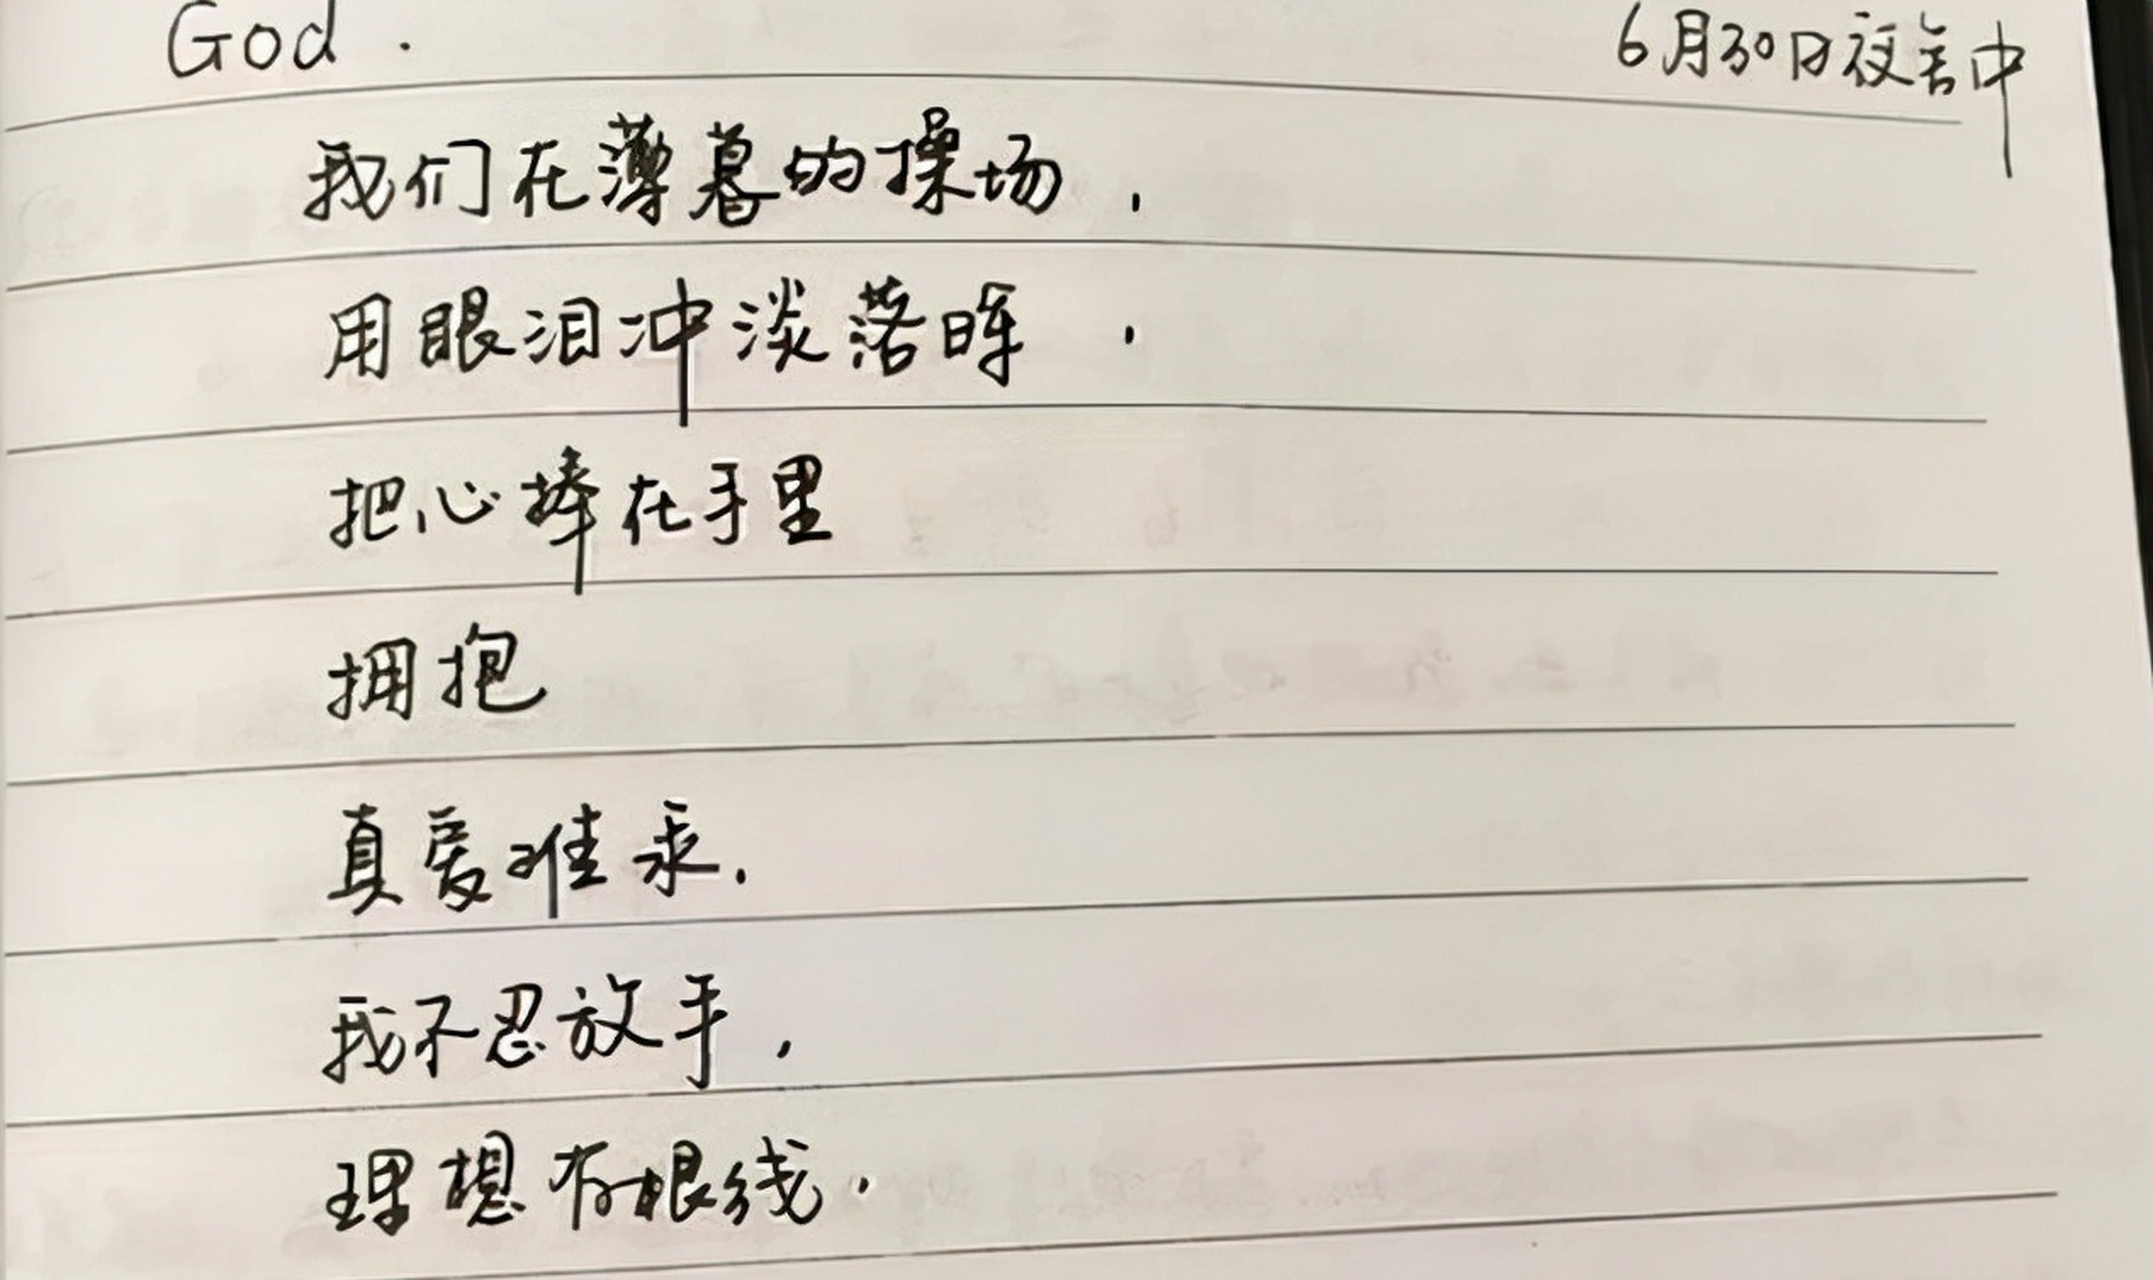 God. 6月30日夜宫中
我们在薄暮的操场,
用眼泪冲淡落晖,
把心捧在手里
拥抱
真爱难求.
我不忍放手,
理想有根线.